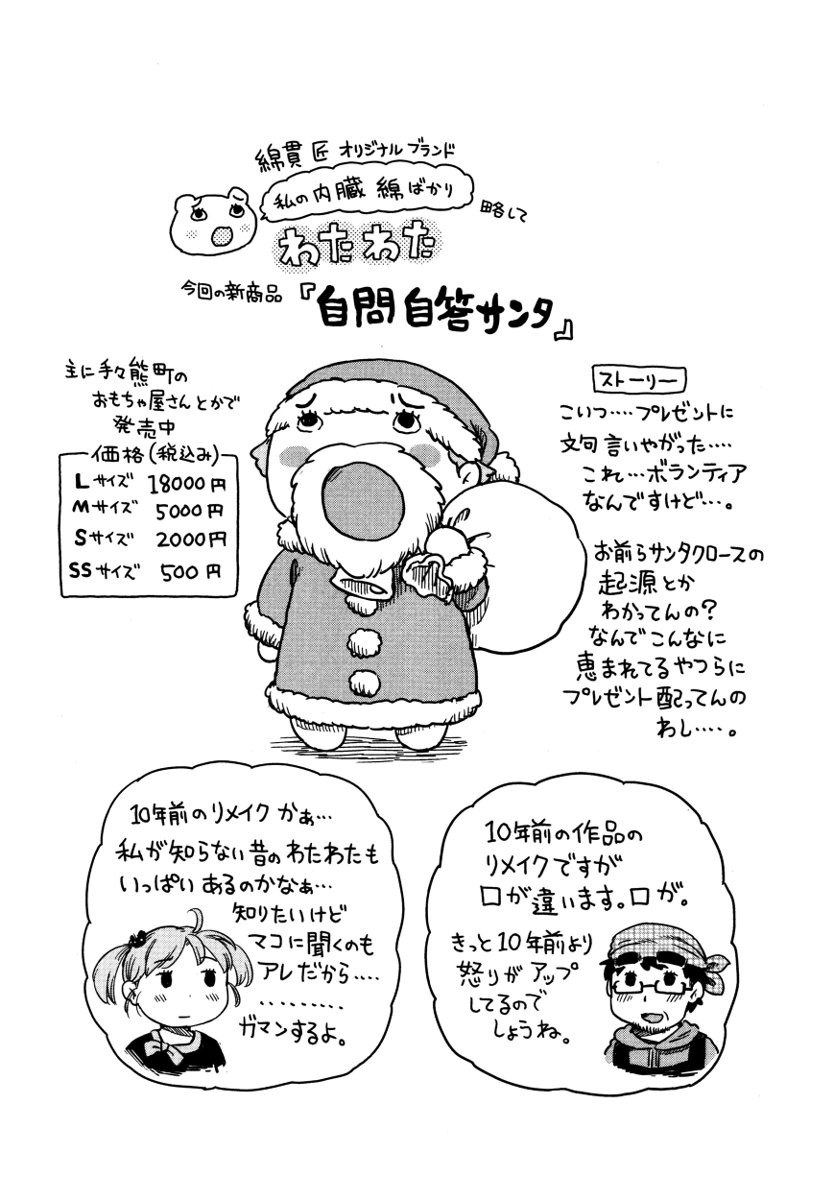 綿貫 匠 オリジナル ブランド
私の 内臓 綿 ばかり
略して
わたわた
今回の新商品
『自問自答サンタ』
主に手々熊町の
おもちゃ屋さんとかで
発売中
価格(税込み)
Lサイズ 18000円
Mサイズ 5000円
Sサイズ 2000円
SSサイズ 500円
ストーリー
こいつ‥‥プレゼントに
文句言いやがった‥‥
これ…ボランティア
なんですけど…。
お前らサンタクロースの
起源とか
わかってんの?
なんでこんなに
恵まれてるやつらに
プレゼント配ってんの
わし‥‥。
10年前のリメイクかぁ…
私が知らない昔のわたわたも
いっぱいあるのかなぁ…
知りたいけど
マコに聞くのも
アレだから‥‥
‥‥‥‥‥
ガマンするよ。
10年前の作品の
リメイクですが
口が違います。口が。
きっと10年前より
怒りがアップ
してるので
しょうね。